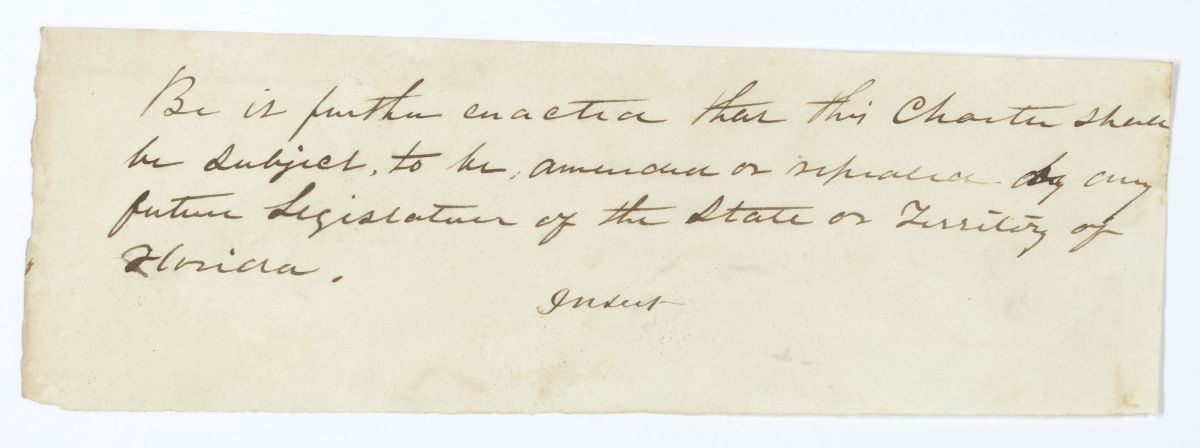 Be it further enacted that this Charter shall
be subject, to be, amended or repealed by any
future Legislature of the State or Territory of
Florida.
Insert